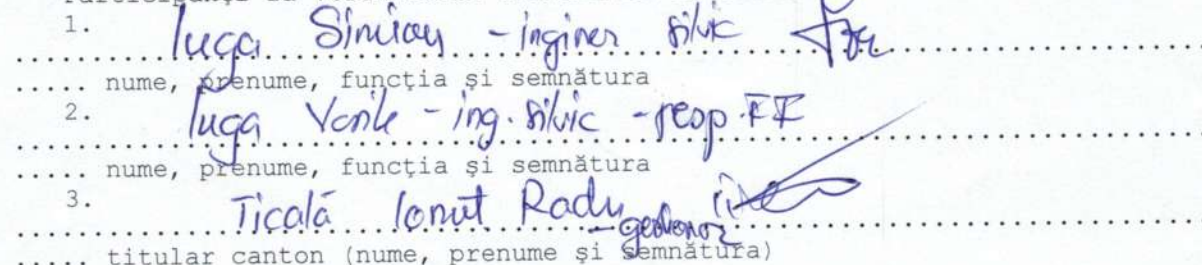 1. Iuga Simion - inginer silvic
..... nume, prenume, funcția și semnătura
2. Iuga Vasile - ing. silvic - resp. FF
..... nume, prenume, funcția și semnătura
3. Ticală Ionuț Radu
..... titular canton (nume, prenume și semnătura)